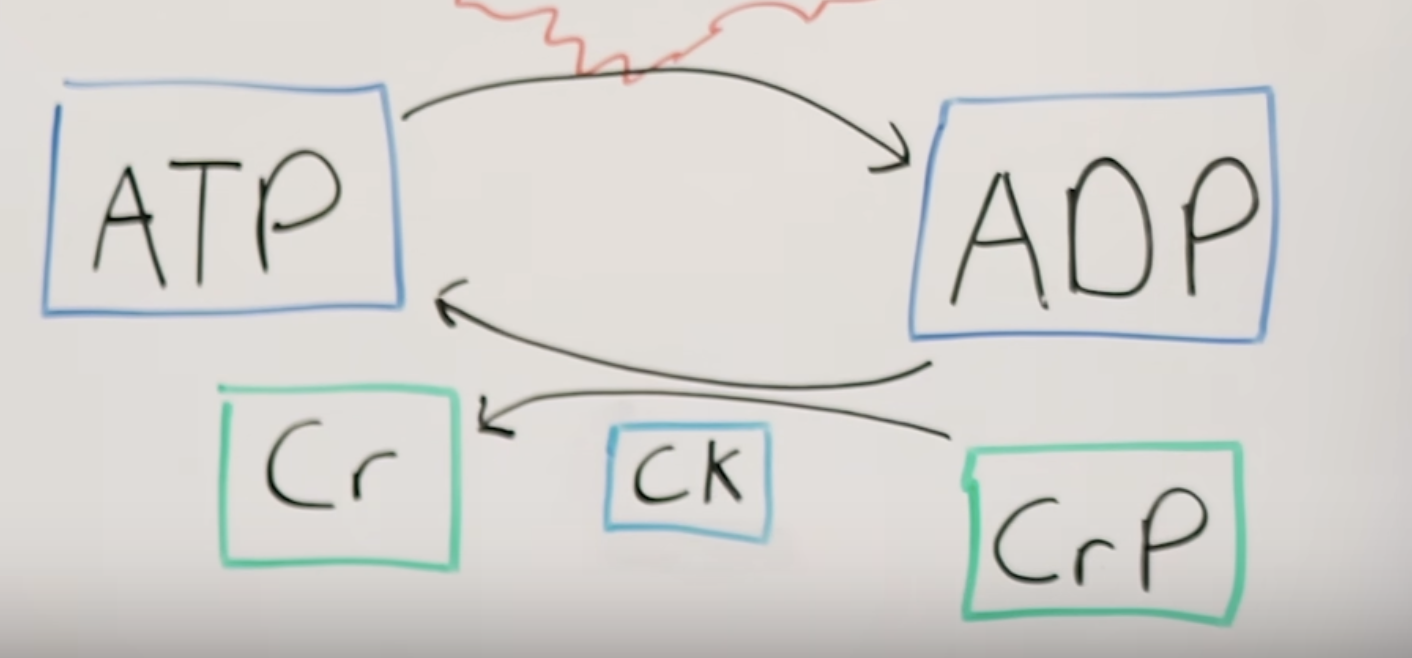 ATP
ADP
Cr
CK
CrP